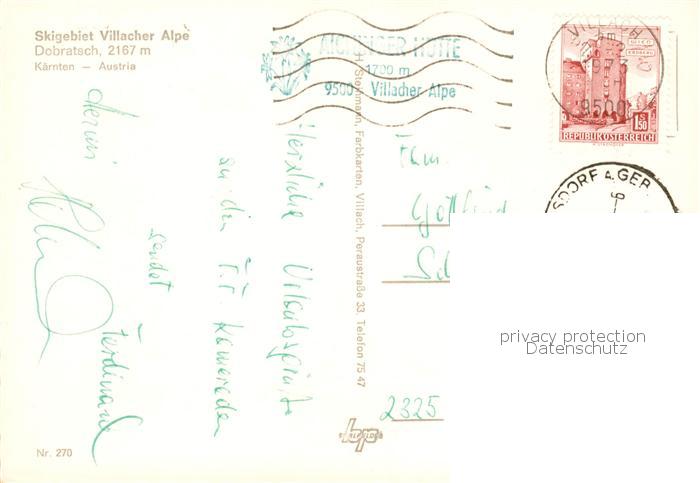 Skigebiet Villacher Alpe
Dobratsch, 2167 m
Kärnten — Austria
AICHINGER HÜTTE
1700 m
9500 Villacher Alpe
VILLACH
9500
WIEN
ERDBERG
1.50
S
REPUBLIK ÖSTERREICH
SDORF A. GEB
Herzliche Urlaubsgrüße
an die T.T. Kameraden
sendet
Ferdinand
Fam.
2325
H. Steinmann, Farbkarten, Villach, Peraustraße 33, Telefon 75 47
Nr. 270
privacy protection
Datenschutz